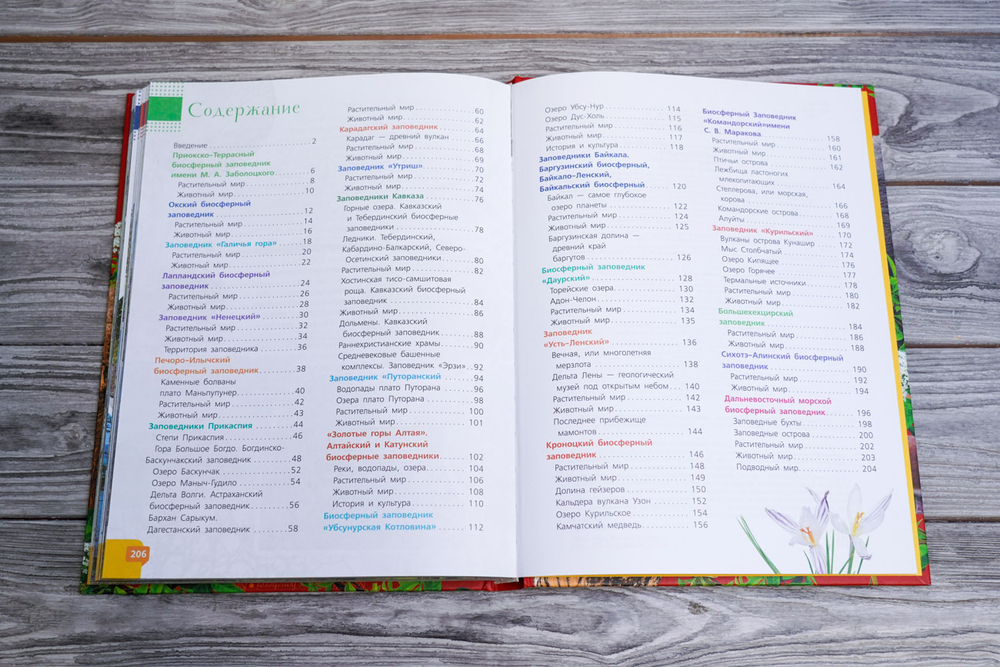 Содержание
Введение 2
Приокско-Террасный
биосферный заповедник
имени М. А. Заболоцкого 6
Растительный мир 8
Животный мир 10
Окский биосферный
заповедник 12
Растительный мир 14
Животный мир 16
Заповедник «Галичья гора» 18
Растительный мир 20
Животный мир 22
Лапландский биосферный
заповедник 24
Растительный мир 26
Животный мир 28
Заповедник «Ненецкий» 30
Растительный мир 32
Животный мир 34
Территория заповедника 36
Печоро-Илычский
биосферный заповедник 38
Каменные болваны
плато Маньпупунер 40
Растительный мир 42
Животный мир 43
Заповедники Прикаспия 44
Степи Прикаспия 46
Гора Большое Богдо. Богдинско-
Баскунчакский заповедник 48
Озеро Баскунчак 52
Озеро Маныч-Гудило 54
Дельта Волги. Астраханский
биосферный заповедник 56
Бархан Сарыкум.
Дагестанский заповедник 58
206
Растительный мир 60
Животный мир 62
Карадагский заповедник 64
Карадаг — древний вулкан 66
Растительный мир 68
Животный мир 69
Заповедник «Утриш» 70
Растительный мир 72
Животный мир 74
Заповедники Кавказа 76
Горные озера. Кавказский
и Тебердинский биосферные
заповедники 78
Ледники. Тебердинский,
Кабардино-Балкарский, Северо-
Осетинский заповедники 80
Растительный мир 82
Хостинская тисо-самшитовая
роща. Кавказский биосферный
заповедник 84
Животный мир 86
Дольмены. Кавказский
биосферный заповедник 88
Раннехристианские храмы 90
Средневековые башенные
комплексы. Заповедник «Эрзи» 92
Заповедник «Путоранский» 94
Водопады плато Путорана 96
Озера плато Путорана 98
Растительный мир 100
Животный мир 101
«Золотые горы Алтая».
Алтайский и Катунский
биосферные заповедники 102
Реки, водопады, озера 104
Растительный мир 106
Животный мир 108
История и культура 110
Биосферный заповедник
«Убсунурская Котловина» 112
Озеро Убсу-Нур 114
Озеро Дус-Холь 115
Растительный мир 116
Животный мир 117
История и культура 118
Заповедники Байкала.
Баргузинский биосферный,
Байкало-Ленский,
Байкальский биосферный 120
Байкал — самое глубокое
озеро планеты 122
Растительный мир 124
Животный мир 125
Баргузинская долина —
древний край
баргутов 126
Биосферный заповедник
«Даурский» 128
Торейские озера 130
Адон-Челон 132
Растительный мир 134
Животный мир 135
Заповедник
«Усть-Ленский» 136
Вечная, или многолетняя
мерзлота 138
Дельта Лены — геологический
музей под открытым небом 140
Растительный мир 142
Животный мир 143
Последнее прибежище
мамонтов 144
Кроноцкий биосферный
заповедник 146
Растительный мир 148
Животный мир 149
Долина гейзеров 150
Кальдера вулкана Узон 152
Озеро Курильское 154
Камчатский медведь 156
Биосферный Заповедник
«Командорский»имени
С. В. Маракова 158
Растительный мир 160
Животный мир 161
Птичьи острова 162
Лежбища ластоногих
млекопитающих 164
Стеллерова, или морская,
корова 166
Командорские острова 168
Алуйты 169
Заповедник «Курильский» 170
Вулканы острова Кунашир 172
Мыс Столбчатый 174
Озеро Кипящее 176
Озеро Горячее 177
Термальные источники 178
Растительный мир 180
Животный мир 182
Большехехцирский
заповедник 184
Растительный мир 186
Животный мир 188
Сихотэ-Алинский биосферный
заповедник 190
Растительный мир 192
Животный мир 194
Дальневосточный морской
биосферный заповедник 196
Заповедные бухты 198
Заповедные острова 200
Растительный мир 202
Животный мир 203
Подводный мир 204